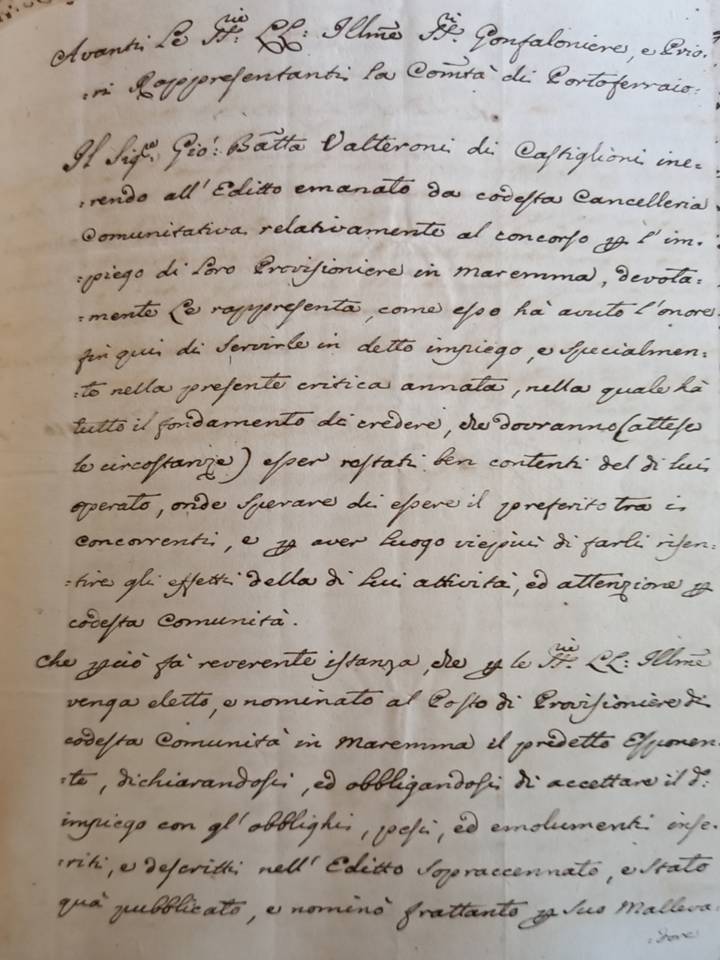 Avanti Le SS.rie LL: Illm̃e SS.ri Gonfaloniere, e Prio:
:ri Rappresentanti la Com̃tà di Portoferraio:
Il Sig.re Gio: Batt̃a Valteroni di Castiglioni ine=
:rendo all' Editto emanato da codesta Cancelleria
Comunitativa relativamente al concorso p l' im-
:piego di Loro Provisioniere in Maremma, devota:
:mente Le rappresenta, come esso hà avuto l'onore
fin qui di servirle in detto impiego, e specialmen:
:te nella presente critica annata, nella quale hà
tutto il fondamento di credere, che dovranno (attese
le circostanze) esser restati ben contenti del di lui
operato, onde sperare di essere il preferito tra i
concorrenti, e p aver luogo viepiù di farli risen:
:tire gli effetti della di lui attività, ed attenzione p
codesta Comunità.
Che pciò fà reverente istanza, che p le SS.rie LL: Illm̃e
venga eletto, e nominato al Posto di Provisioniere di
codesta Comunità in Maremma il predetto Esponen:
:te, dichiarandosi, ed obbligandosi di accettare il d:o
impiego con gl' obblighi, pesi, ed emolumenti inse:
:riti, e descritti nell' Editto sopraccennato, e stato
quà pubblicato, e nominò frattanto p suo Malleva
:dore